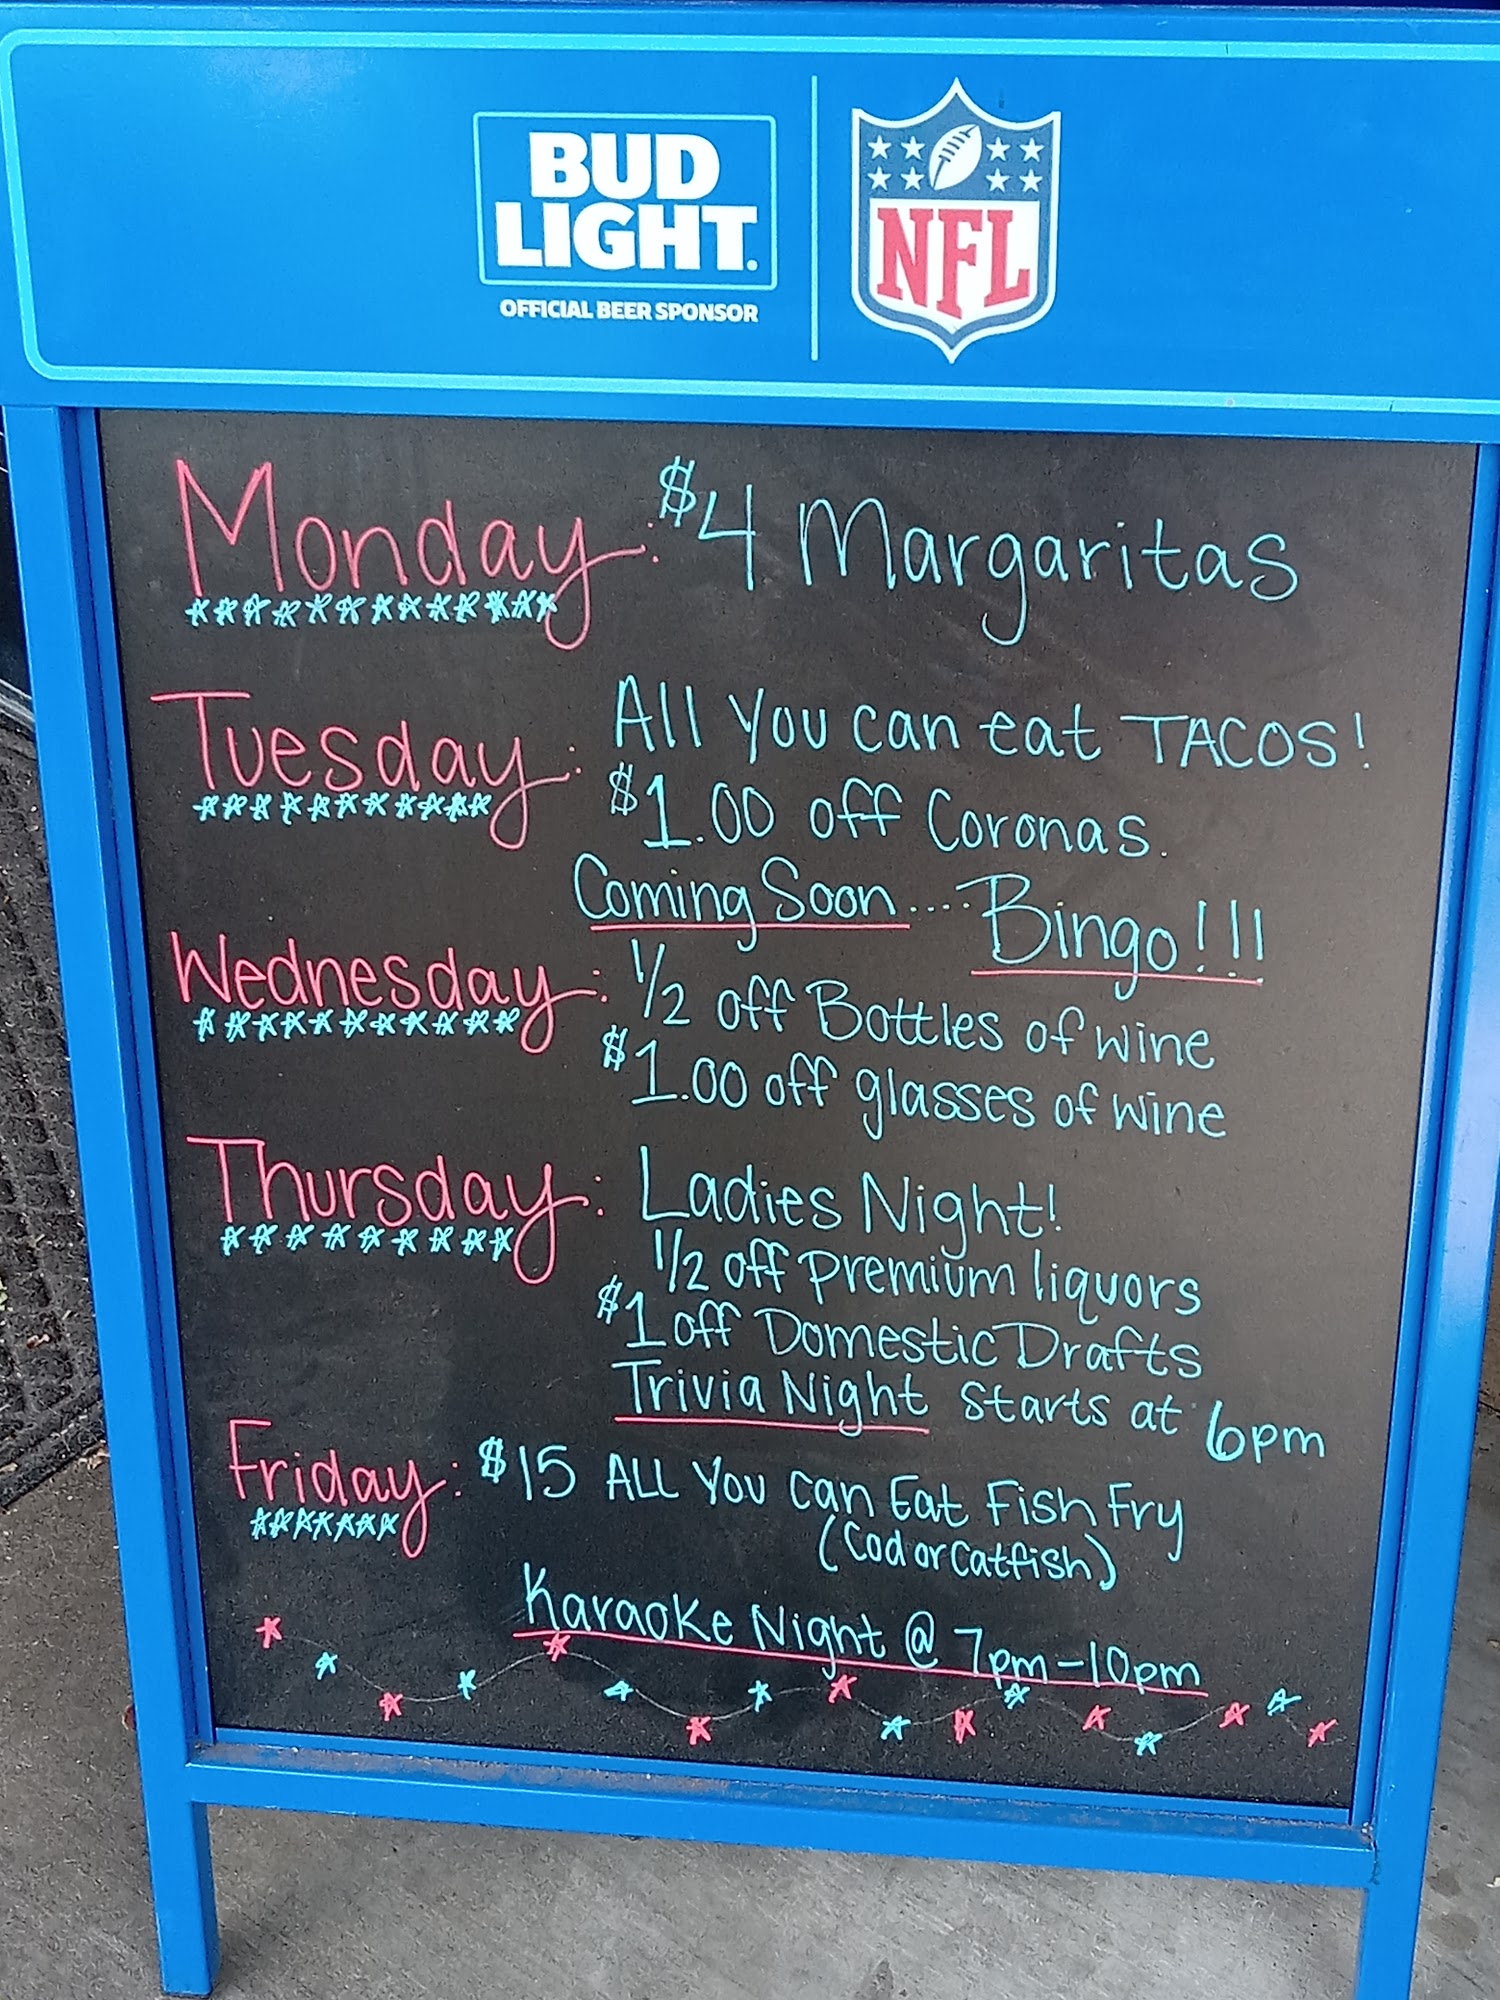 BUD
LIGHT.
OFFICIAL BEER SPONSOR
NFL
Monday: $4 Margaritas
Tuesday: All you can eat TACOS!
$1.00 off Coronas.
Coming Soon.... Bingo!!!
Wednesday: 1/2 off Bottles of wine
$1.00 off glasses of wine
Thursday: Ladies Night!
1/2 off premium liquors
$1 off Domestic Drafts
Trivia Night starts at 6pm
Friday: $15 ALL You can Eat Fish Fry
(Cod or Catfish)
Karaoke Night @ 7pm-10pm